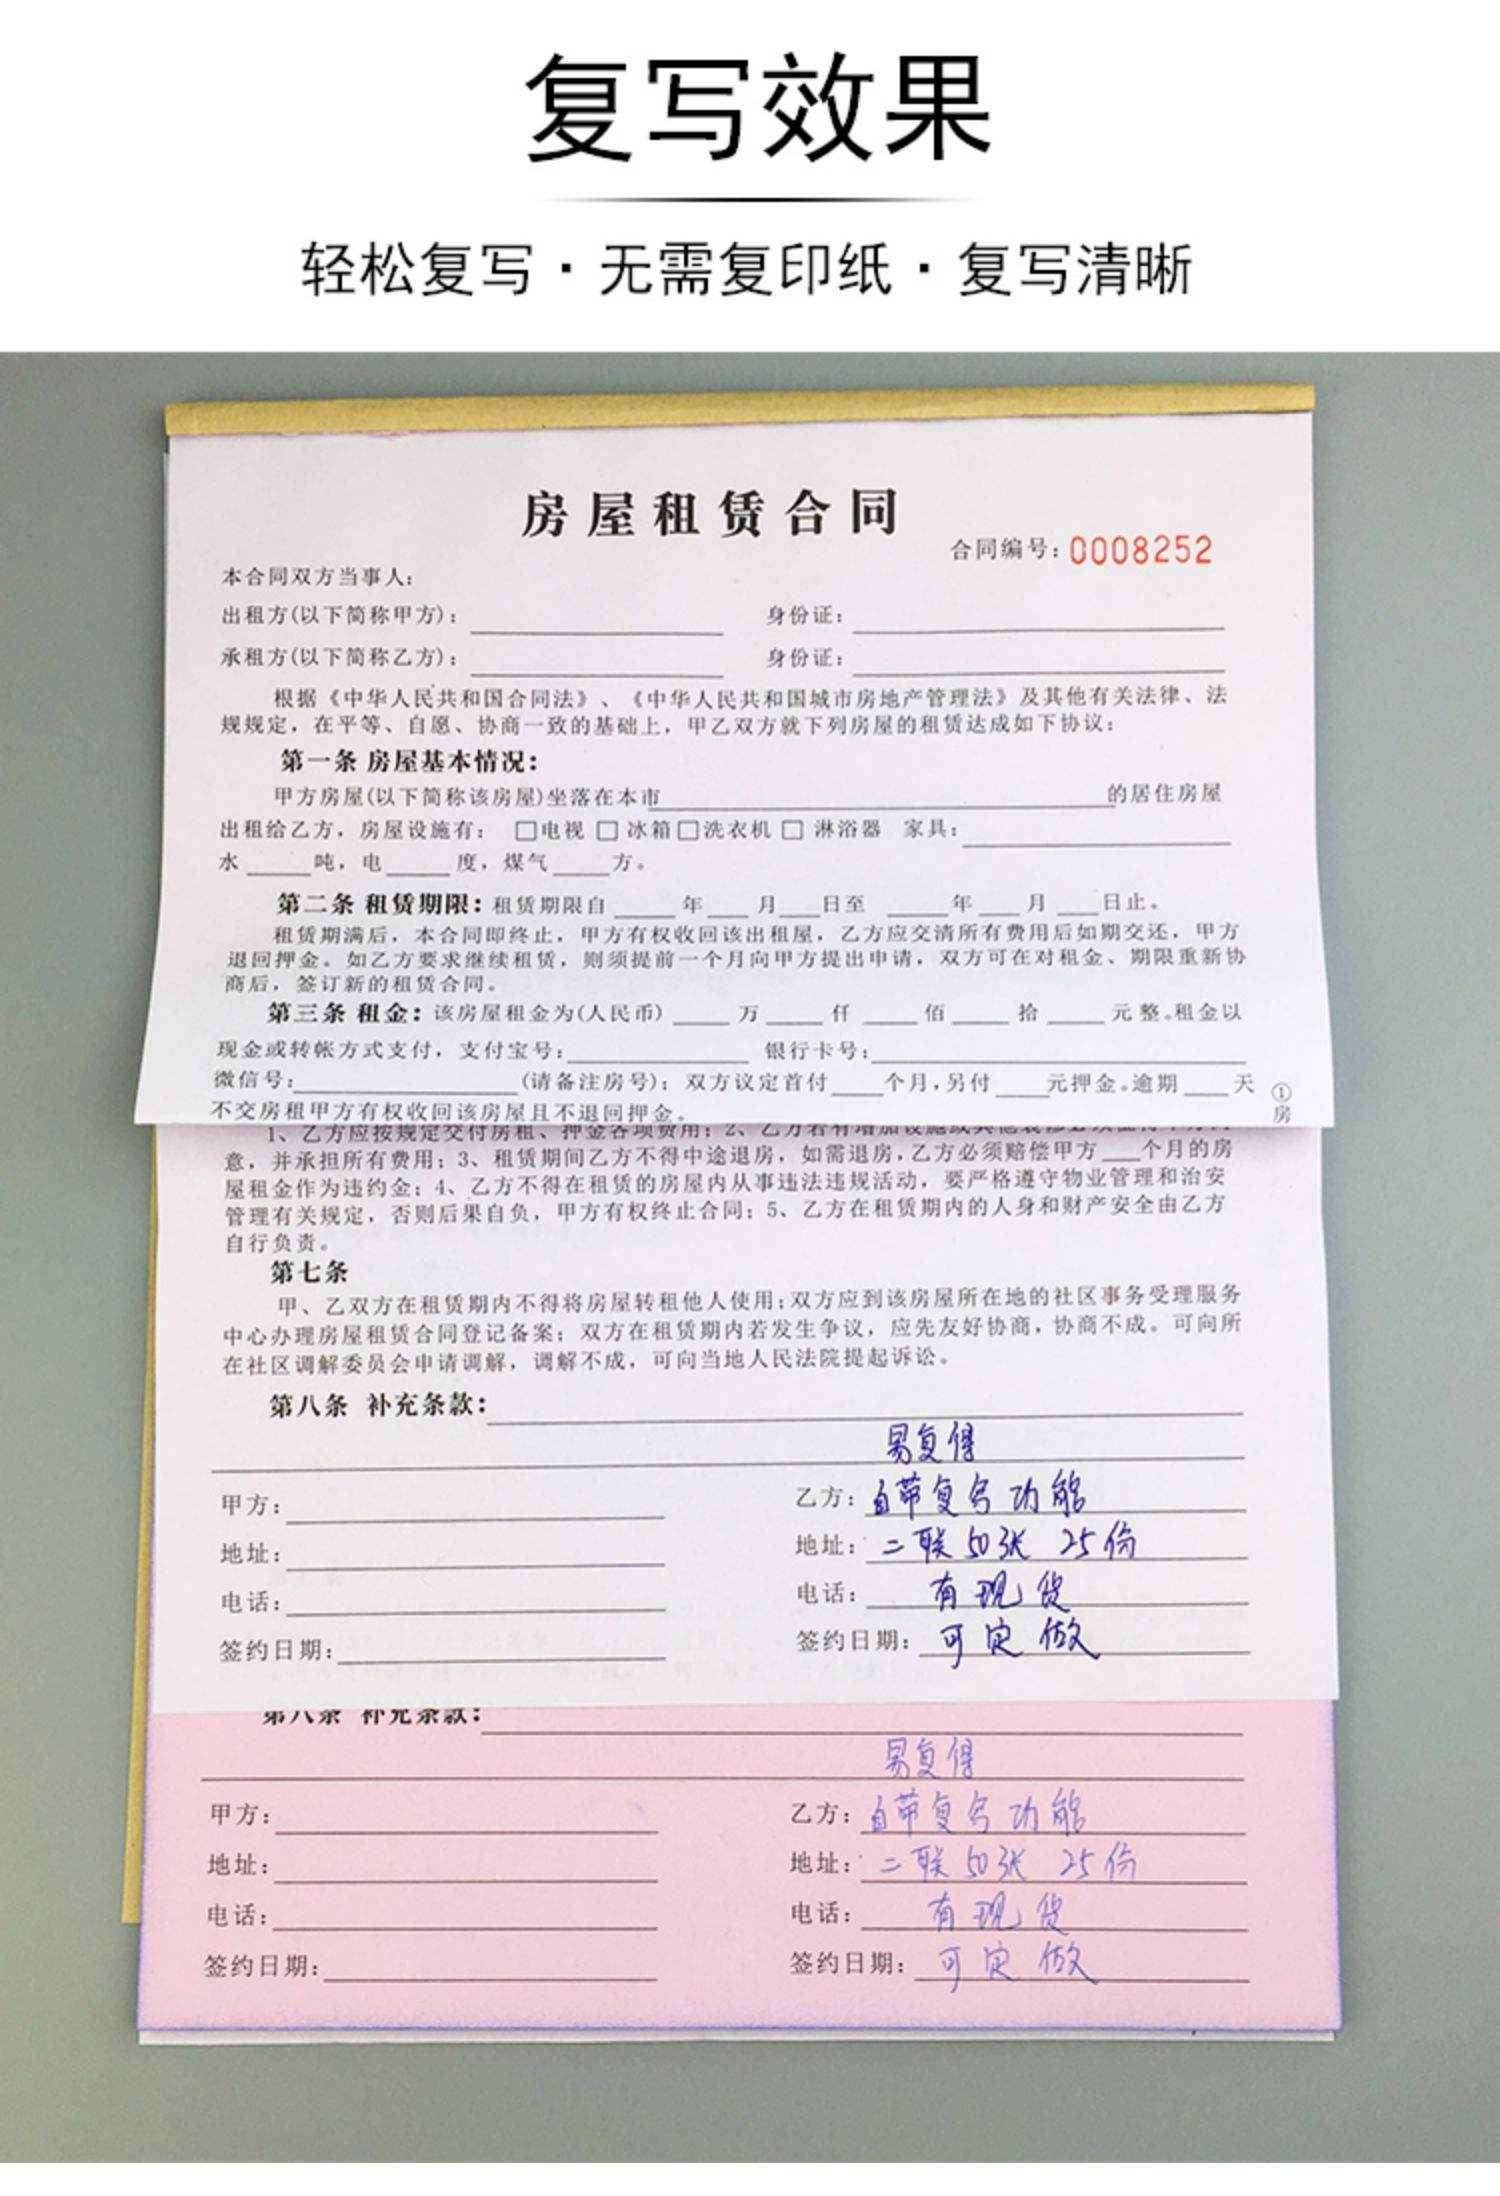 复写效果
轻松复写·无需复印纸·复写清晰
房屋租赁合同
合同编号：0008252
本合同双方当事人：
出租方(以下简称甲方)：________ 身份证：________
承租方(以下简称乙方)：________ 身份证：________
根据《中华人民共和国合同法》、《中华人民共和国城市房地产管理法》及其他有关法律、法
规规定，在平等、自愿、协商一致的基础上，甲乙双方就下列房屋的租赁达成如下协议：
第一条 房屋基本情况：
甲方房屋(以下简称该房屋)坐落在本市________的居住房屋
出租给乙方，房屋设施有： □电视 □ 冰箱□洗衣机 □ 淋浴器 家具：________
水____吨，电____度，煤气____方。
第二条 租赁期限：租赁期限自____年___月___日至____年___月___日止。
租赁期满后，本合同即终止，甲方有权收回该出租屋，乙方应交清所有费用后如期交还，甲方
退回押金。如乙方要求继续租赁，则须提前一个月向甲方提出申请，双方可在对租金、期限重新协
商后，签订新的租赁合同。
第三条 租金：该房屋租金为(人民币)____万____仟____佰____拾____元整。租金以
现金或转帐方式支付，支付宝号：________ 银行卡号：________
微信号：________(请备注房号)；双方议定首付___个月，另付___元押金。逾期___天
不交房租甲方有权收回该房屋且不退回押金。
①
房
1、乙方应按规定交付房租、押金各项费用；2、乙方若有增加设施或其他装修必须
意，并承担所有费用；3、租赁期间乙方不得中途退房，如需退房，乙方必须赔偿甲方___个月的房
屋租金作为违约金；4、乙方不得在租赁的房屋内从事违法违规活动，要严格遵守物业管理和治安
管理有关规定，否则后果自负，甲方有权终止合同；5、乙方在租赁期内的人身和财产安全由乙方
自行负责。
第七条
甲、乙双方在租赁期内不得将房屋转租他人使用；双方应到该房屋所在地的社区事务受理服务
中心办理房屋租赁合同登记备案；双方在租赁期内若发生争议，应先友好协商，协商不成。可向所
在社区调解委员会申请调解，调解不成，可向当地人民法院提起诉讼。
第八条 补充条款：
易复得
甲方：________ 乙方：自带复写功能
地址：________ 地址：二联50张 25份
电话：________ 电话：有现货
签约日期：________ 签约日期：可定做
第八条 补充条款：
易复得
甲方：________ 乙方：自带复写功能
地址：________ 地址：二联50张 25份
电话：________ 电话：有现货
签约日期：________ 签约日期：可定做